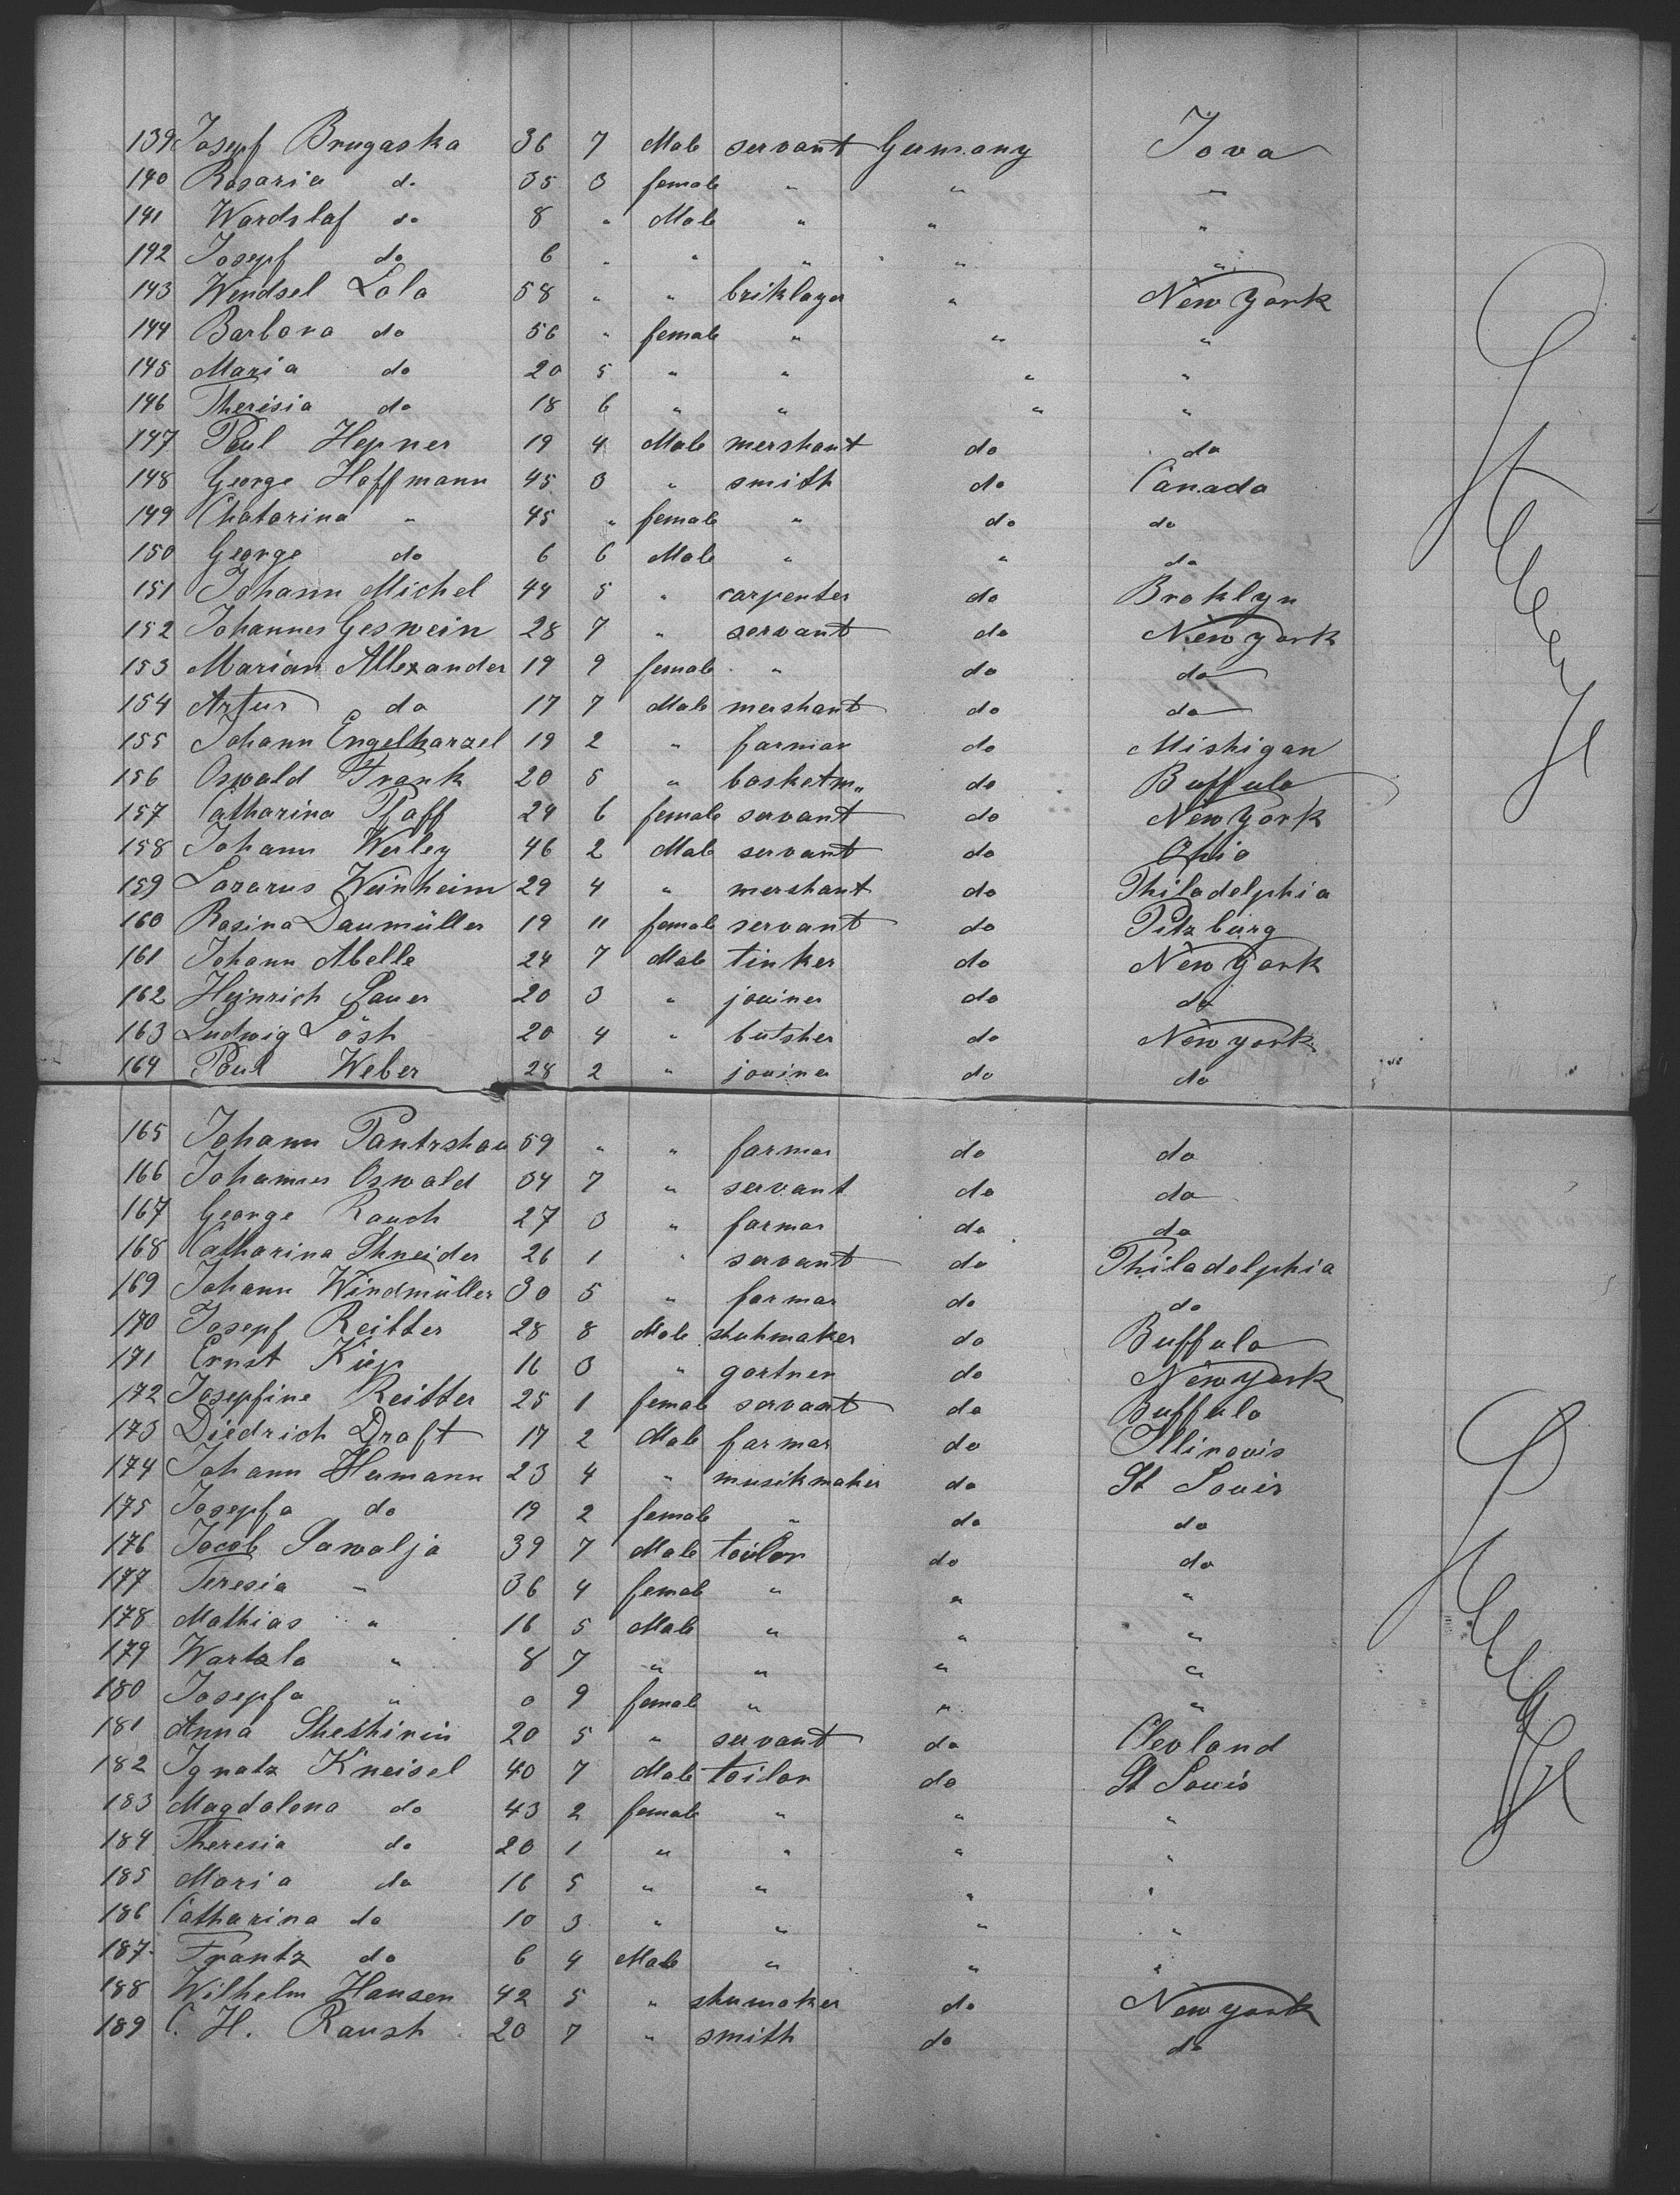 139 Josepf Brugaska 36 7 Male servant Germany Iova
140 Rosaria do 35 3 female " " "
141 Wardslaf do 8 " Male " " "
142 Josepf do 6 " " " " "
143 Wendsel Lola 58 " " briklayer " New York
144 Barbara do 56 " female " " "
145 Maria do 20 5 " " " "
146 Therisia do 18 6 " " " "
147 Paul Hepner 19 4 Male mershant do do
148 George Hoffmann 45 3 " smith do Canada
149 Chatarina " 45 " female " do do
150 George do 6 6 Male " " do
151 Johann Michel 44 5 " carpenter do Broklyn
152 Johannes Geswein 28 7 " servant do New york
153 Marian Allexander 19 9 female " do do
154 Artur do 17 7 Male mershant do do
155 Johann Engelharzel 19 2 " farmar do Mishigan
156 Oswald Frank 20 5 " basketm" do Buffulo
157 Catharina Pfaff 24 6 female servant do New York
158 Johann Werley 46 2 Male servant do Ohio
159 Lazarus Weinheim 29 4 " mershant do Philadelphia
160 Rosina Daumüller 19 11 female servant do Pitzburg
161 Johann Abelle 24 7 Male tinker do New York
162 Heinrich Sauer 20 3 " jouiner do do
163 Ludwig Lösh 20 4 " butsher do New york
164 Paul Weber 28 2 " jouiner do do
165 Johann Pantrshau 59 " " farmer do do
166 Johannes Oswald 34 7 " servant do do
167 George Rauch 27 3 " farmar do do
168 Catharina Shneider 26 1 " servant do Philadelphia
169 Johann Windmüller 30 5 " farmar do do
170 Josepf Reitter 28 8 Male shuhmaker do Buffulo
171 Ernst Kiep 16 3 " gartner do New york
172 Josepfine Reitter 25 1 female servant do Buffulo
173 Diedrich Draft 17 2 Male farmar do Illinouis
174 Johann Humann 23 4 " musikmaker do St Louis
175 Josepfa do 19 2 female " do do
176 Jacob Sawalja 39 7 Male toilor do do
177 Teresia " 36 4 female " " "
178 Mathias " 16 5 Male " " "
179 Wartzla " 8 7 " " " "
180 Josepfa " 0 9 female " " "
181 Anna Sheshirin 20 5 " servant do Clevland
182 Ignatz Kneisel 40 7 Male toilor do St Louis
183 Magdalena do 43 2 female " " "
184 Theresia do 20 1 " " " "
185 Maria do 16 5 " " " "
186 Catharina do 10 3 " " " "
187 Frantz do 6 4 Male " " "
188 Wilhelm Hansen 42 5 " shumaker do New york
189 C. H. Raush 20 7 " smith do do